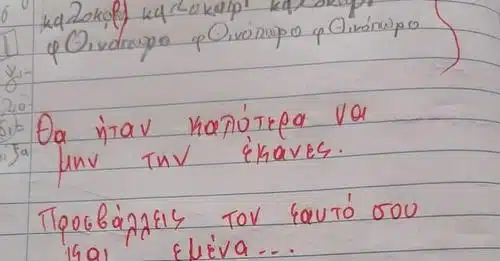 καλοκαιρι
φθινόπωρο φθινόπωρο φθινόπωρο
Θα ήταν καλύτερα να
μην την έκανες.
Προσβάλλεις τον εαυτό σου
και εμένα...